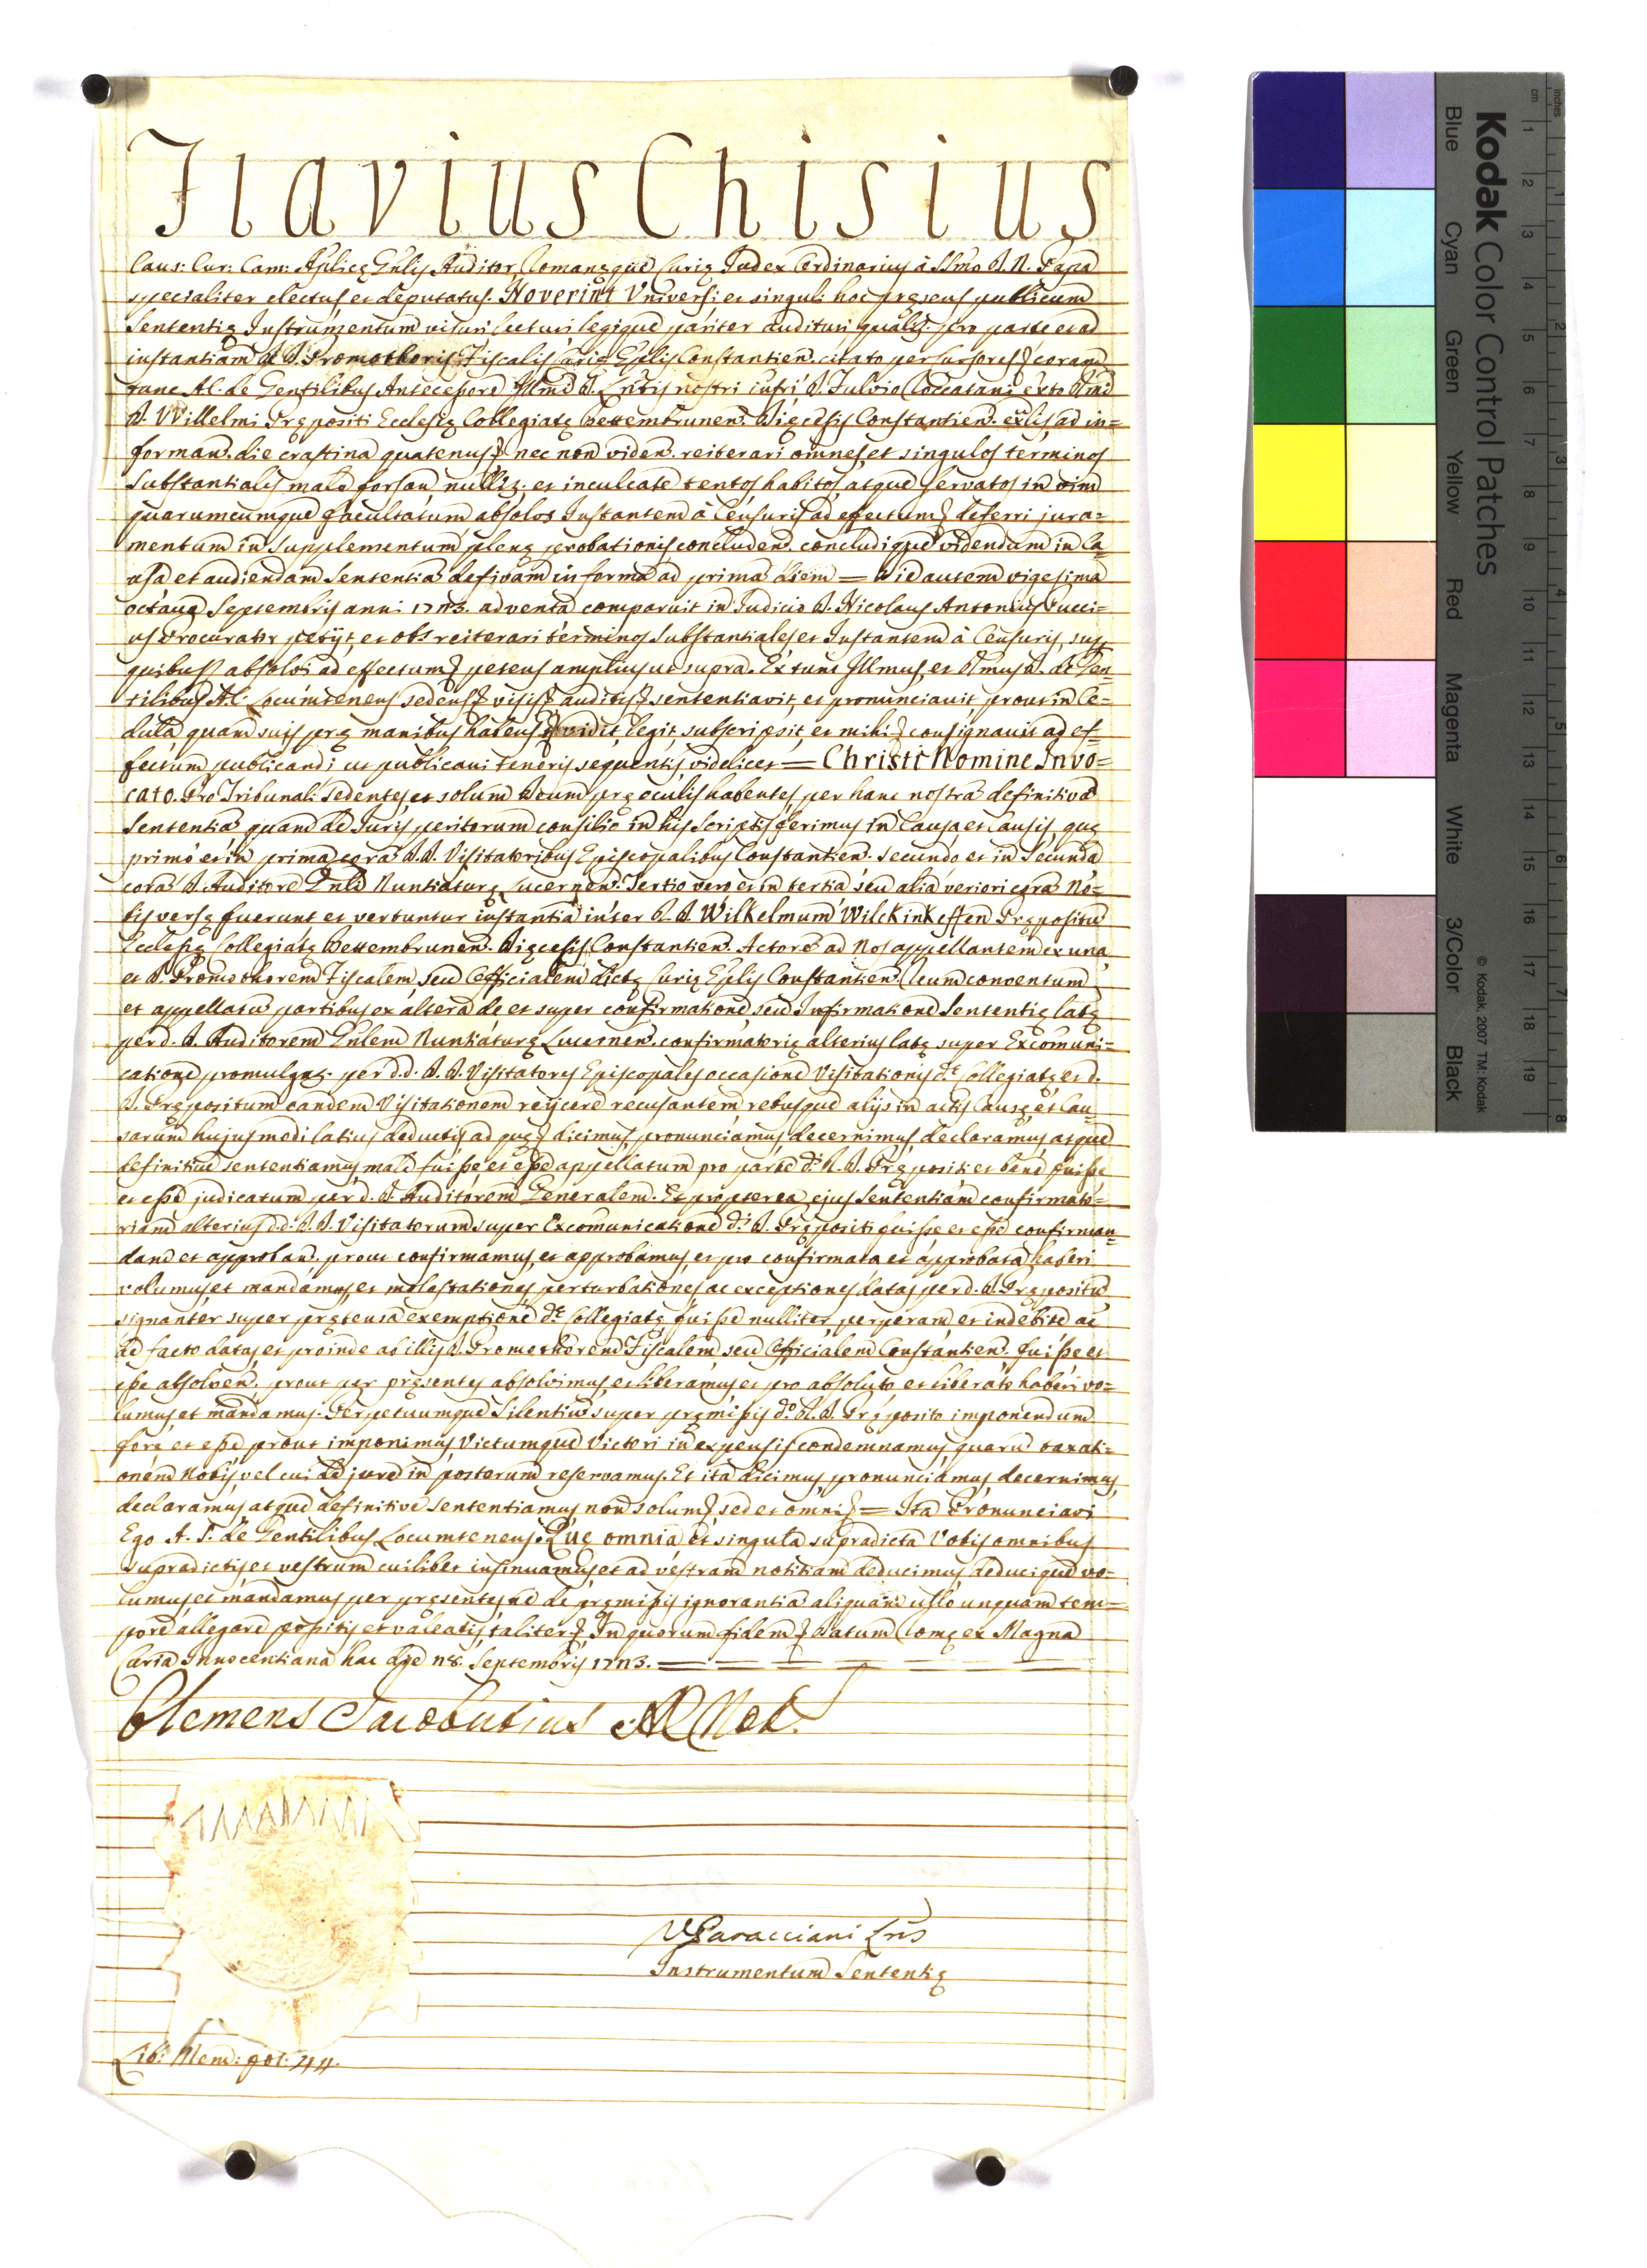 Flavius Chisius
Caus: Cur: Cam: Aplicę Gnlis Auditor Romanęque Curię Judex Ordinarius à SSmo D. N. Papa
specialiter electus et deputatus. Noverint Universi et singuli hoc pręsens publicum
Sententię Instrumentum visuri lecturi legique pariter audituri qualiter pro parte et ad
instantiam D. Promothoris Fiscalis Curię Eplis Constantien. citato per Cursores coram
tunc A.C. de Gentilibus Antecessore Illmi D. nostri infri D. Fulvio exto Rmi
D. Willelmi Prępositi Ecclesię Collegiatę Bettembrunen. Dięcesis Constantien. exlis ad in=
forman. die crastina quatenus nec non viden. reiterari omnes et singulos terminos
Substantiales male forsan nullit. et inculcate tentos habitos atque servatos in vim
quarumcumque facultatum absolvi Instantem à Censuris ad effectum deferri jura=
mentum in supplementum plenę probationis concluden. concludique videndum in Ca
usa et audiendam Sententiã definam in forma ad primã diem = Die autem vigesima
octava Septembris anni 1713. adventa comparuit in Judicio D. Nicolaus Antonius Cucci=
us Procurator petijt, et obt reiterari terminos Substantiales et Instantem à Censuris, sup
quibus absolvi ad effectum petens amplius ut supra. Ex tunc Illmus, et Rmus D. de Gen=
tilibus A.C. Locumtenens sedens visis auditis sententiavit, et pronunciavit prout in Ce=
dula quam suis pre manibus habens vidit, legit, subscripsit, et mihi consignavit ad ef=
fectum publicandi et publicavi tenoris sequentis videlicet = Christi Nomine Invo=
cato. Pro Tribunali Sedentes et solum Deum prę oculis habentes, per hanc nostrã definitivã
Sententiã quam de Juris peritorum consilio in his Scriptis ferimus in Causa et Causis, quę
primò et in prima corã D.D. Visitatoribus Episcopalibus Constantien. secundo et in Secunda
corã D. Auditore Gnli Nuntiaturę Lucernen. Tertio vero et in tertia seu alia veriori corã No=
bis versę fuerunt et vertuntur instantia inter R. D. Wilhelmum Wilckinkeffen Prępositũ
Ecclesię Collegiatę Bettembrunen. Dięcesis Constantien. Actorẽ ad Nos appellantem ex una
et D. Promothorem Fiscalem seu Officialem dictę Curię Eplis Constantien. Reum conventum
et appellatũ partibus ex altera de et super confirmatione seu Infirmatione Sententię latę
per d. D. Auditorem Gnlem Nuntiaturę Lucernen. confirmatorię alterius latę super Excomuni=
catione promulgat. per d.d. D. D. Visitatores Episcopales occasione Visitationis dę Collegiatę et d.
D. Prępositum eandem Visitationem reijcere recusantem rebusque alijs in actis Causę et Cau=
sarum hujusmodi latius deductis ad quę dicimus, pronunciamus decernimus, declaramus atque
definitive sententiamus male fuisse et esse appellatum pro parte di R. D. Prępositi et bene fuisse
et esse judicatum per d. D. Auditorem Generalem. Et propterea ejus Sententiam confirmato=
riam alterius d.d. D. D. Visitatorum super Excomunicatione di D. Prępositi fuisse et esse confirman=
dam et approban. prout confirmamus, et approbamus, et pro confirmata et approbata haberi
volumus, et mandamus, et molestationes, perturbationes, ac exceptiones datas per d. D. Prępositũ
signanter super prętensa exemptione dę Collegiatę fuisse nulliter, perperam et indebite ac
de facto datas, et proinde ab illis D. Promothorem Fiscalem seu Officialem Constantien. fuisse et
esse absolven. prout per pręsentes absolvimus, et liberamus et pro absoluto, et liberato haberi vo=
lumus et mandamus. Perpetuumque Silentiũ super pręmissis do R. D. Pręposito imponendum
fore et esse prout imponimus Victumque Victori in expensis condemnamus, quarũ taxati=
onem Nobis, vel cui de jure in posterum reservamus. Et ita dicimus, pronunciamus, decernimus,
declaramus, atque definitive sententiamus non solum sed et omni = Ita Pronunciavi
Ego A. F. de Gentilibus Locumtenens. Quę omnia, et singula supradicta Vobis omnibus
supradictis, et vestrum cuilibet insinuamus, et ad vestram notitiam deducimus deducique vo=
lumus, et mandamus per pręsentes, ne de pręmissis ignorantiã aliquam ullo unquam tem=
pore allegare possitis et valeatis, taliter In quorum fidem Datum Romę ex Magna
Curia Innocentiana hac die 28. Septembris 1713.
Clemens Jacobutius AC Not.
V. Caracciani Lns
Instrumentum Sententię
Lib: Mem: fol: 44.
Kodak Color Control Patches
Blue Cyan Green Yellow Red Magenta White 3/Color Black
© Kodak, 2007 TM: Kodak
inches 1 2 3 4 5 6 7 8
cm 1 2 3 4 5 6 7 8 9 10 11 12 13 14 15 16 17 18 19